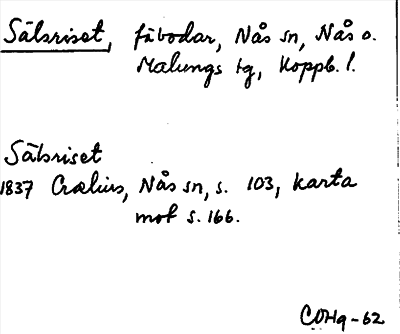 Sälsriset, fäbodar, Nås sn, Nås o.
Malungs tg, Koppb. l.
Sälsriset
1837 Crælius, Nås sn, s. 103, karta
mot s. 166.
COHq-62